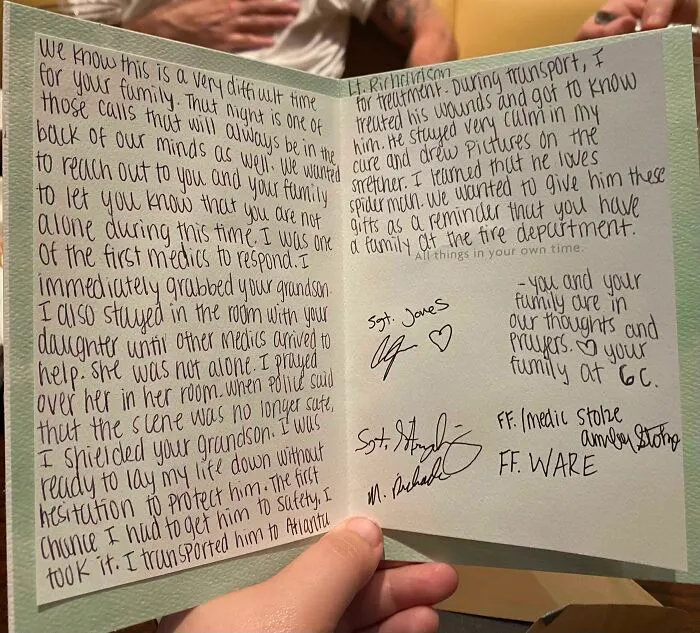 We know this is a very difficult time
for your family. That night is one of
those calls that will always be in the
back of our minds as well. We wanted
to reach out to you and your family
to let you know that you are not
alone during this time. I was one
of the first medics to respond. I
immediately grabbed your grandson.
I also stayed in the room with your
daughter until other medics arrived to
help. She was not alone. I prayed
over her in her room. When police said
that the scene was no longer safe,
I shielded your grandson. I was
ready to lay my life down without
hesitation to protect him. The first
chance I had to get him to safety, I
took it. I transported him to Atlanta
Lt. Richardson
for treatment. During transport, I
treated his wounds and got to know
him. He stayed very calm in my
care and drew pictures on the
stretcher. I learned that he loves
spiderman. We wanted to give him these
gifts as a reminder that you have
a family at the fire department.
All things in your own time.
- you and your
family are in
our thoughts and
prayers. ♡ your
family at 6C.
Sgt. Jones
♡
Sgt.
M.
FF./medic Stolze
FF. WARE